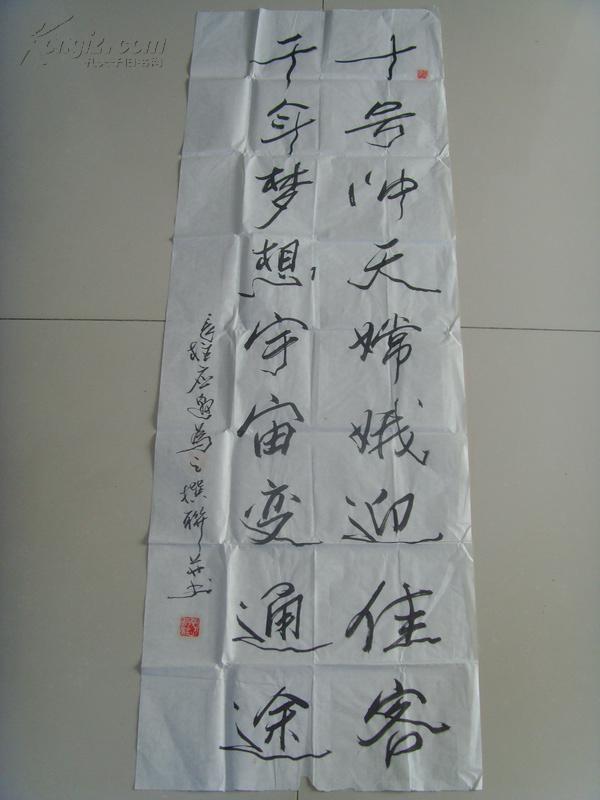 十号冲天嫦娥迎佳客
千年梦想宇宙变通途
应邀为之撰联并书
Kongfz.com
孔夫子旧书网